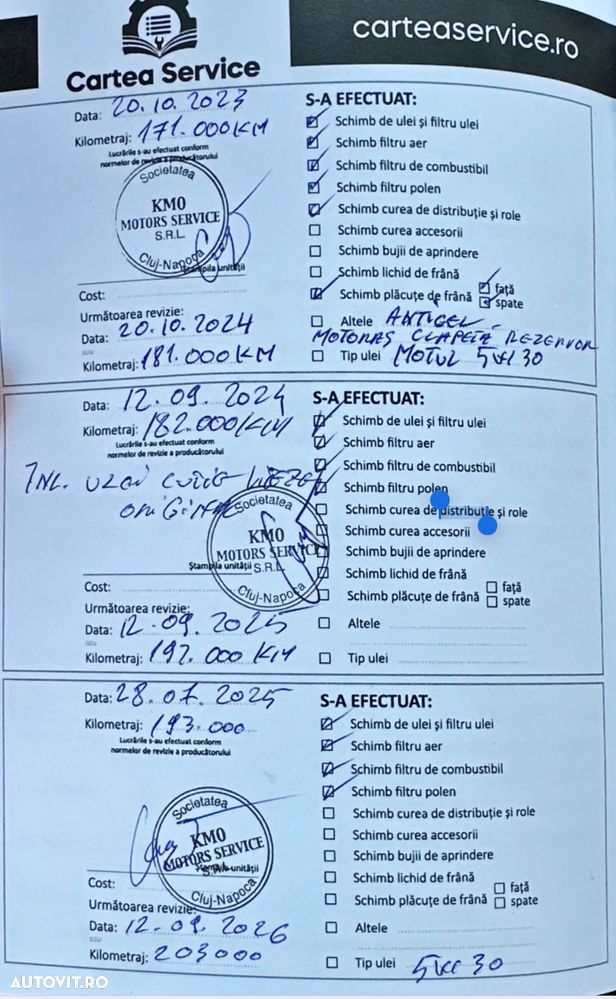 Cartea Service
carteaservice.ro
Data: 20.10.2023
Kilometraj: 171.000 KM
Lucrările s-au efectuat conform
normelor de revizie a producătorului
Societatea
KMO
MOTORS SERVICE
S.R.L.
Cluj-Napoca
Ștampila unității
Cost:
Următoarea revizie:
Data: 20.10.2024
sau
Kilometraj: 181.000 KM
S-A EFECTUAT:
Schimb de ulei și filtru ulei
Schimb filtru aer
Schimb filtru de combustibil
Schimb filtru polen
Schimb curea de distribuție și role
Schimb curea accesorii
Schimb bujii de aprindere
Schimb lichid de frână
Schimb plăcuțe de frână
față
spate
Altele ANTIGEL
MOTORAȘ CLAPETA REZERVOR
Tip ulei MOTUL 5W30
Data: 12.09.2024
Kilometraj: 182.000 KM
Lucrările s-au efectuat conform
normelor de revizie a producătorului
ÎNL.
Societatea
KMO
MOTORS SERVICE
Ștampila unității S.R.L.
Cluj-Napoca
Cost:
Următoarea revizie:
Data: 12.09.2025
sau
Kilometraj: 192.000 KM
S-A EFECTUAT:
Schimb de ulei și filtru ulei
Schimb filtru aer
Schimb filtru de combustibil
Schimb filtru polen
Schimb curea de distribuție și role
Schimb curea accesorii
Schimb bujii de aprindere
Schimb lichid de frână
Schimb plăcuțe de frână
față
spate
Altele
Tip ulei
Data: 28.07.2025
Kilometraj: 193.000
Lucrările s-au efectuat conform
normelor de revizie a producătorului
Societatea
KMO
MOTORS SERVICE
Ștampila unității
Cluj-Napoca
Cost:
Următoarea revizie:
Data: 12.09.2026
sau
Kilometraj: 203000
S-A EFECTUAT:
Schimb de ulei și filtru ulei
Schimb filtru aer
Schimb filtru de combustibil
Schimb filtru polen
Schimb curea de distribuție și role
Schimb curea accesorii
Schimb bujii de aprindere
Schimb lichid de frână
Schimb plăcuțe de frână
față
spate
Altele
Tip ulei 5W30
AUTOVIT.RO